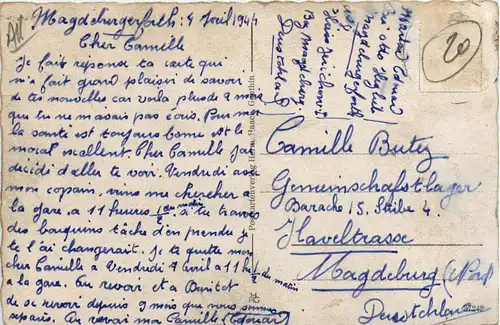 Magdeburgerforth: 4 Avril 1944
Cher Camille
Je fait reponse ta carte qui
m'a fait grand plaisir de savoir
de tes nouvelles car voila plus de 2 mois
que tu ne m'avais pas ecris. Pour moi
la santé est toujours bonne et le
moral excellent. Cher Camille j'ai
decidi d'aller te voir. Vendredi avec
mon copain, viens me chercher a
la gare. a 11 heures 1/2 du matin a te trouver
des bouquins tâche d'en prendre je
te l'ai changerait. Je te quitte mon
cher Camille a Vendredi 7 avril a 11 h 1/2 du matin
a la gare. Au revoir et a Bientot
de se revoir depuis 9 mois que nous sommes
separés. Au revoir ma Camille (Edouard)
Edouard
Magdeburgerforth
Bz Magdeburg
Deutschland
20
Camille Butez
Gemeinschaftslager
Barache 15. Stube 4.
Haveltrasse
Magdeburg
Deustchland